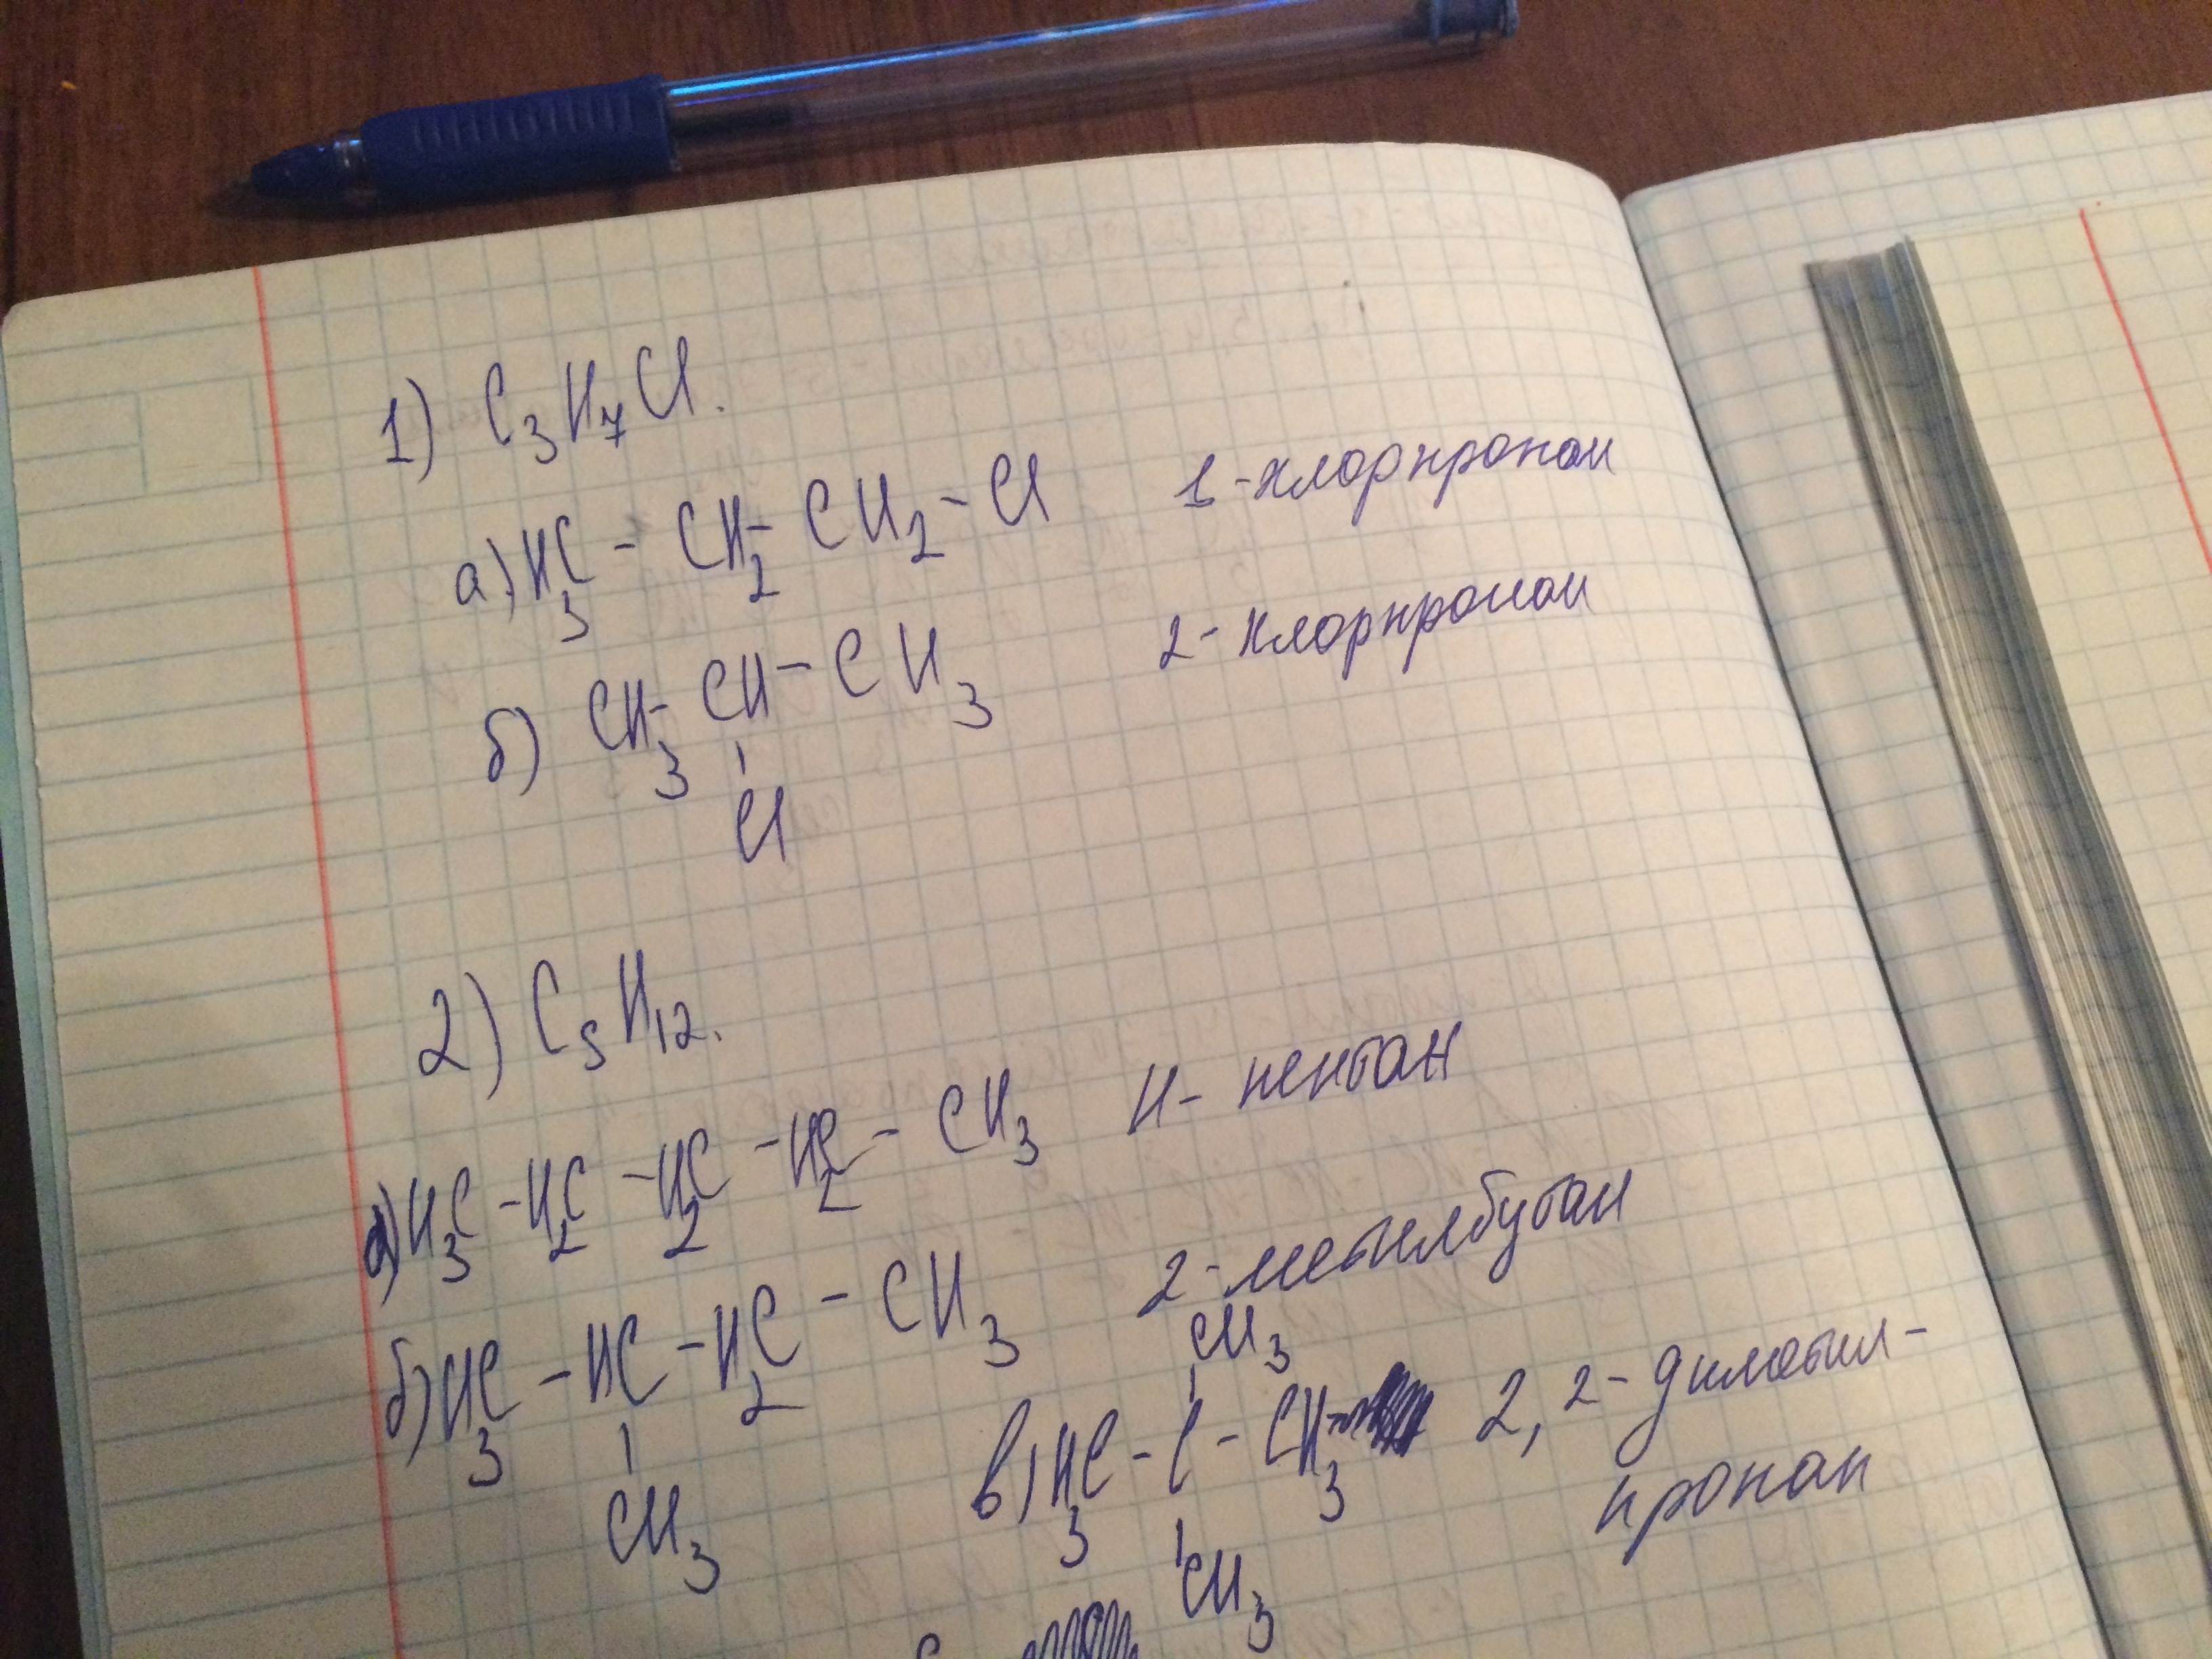 1) C3H7Cl.
а) H3C - CH2 - CH2 - Cl 1-хлорпропан
б) CH3 - CH - CH3 2-хлорпропан
Cl
2) C5H12.
а) H3C - H2C - H2C - H2C - CH3 н-пентан
б) H3C - HC - H2C - CH3 2-метилбутан
CH3
CH3
в) H3C - C - CH3 2,2-диметил-
пропан
CH3